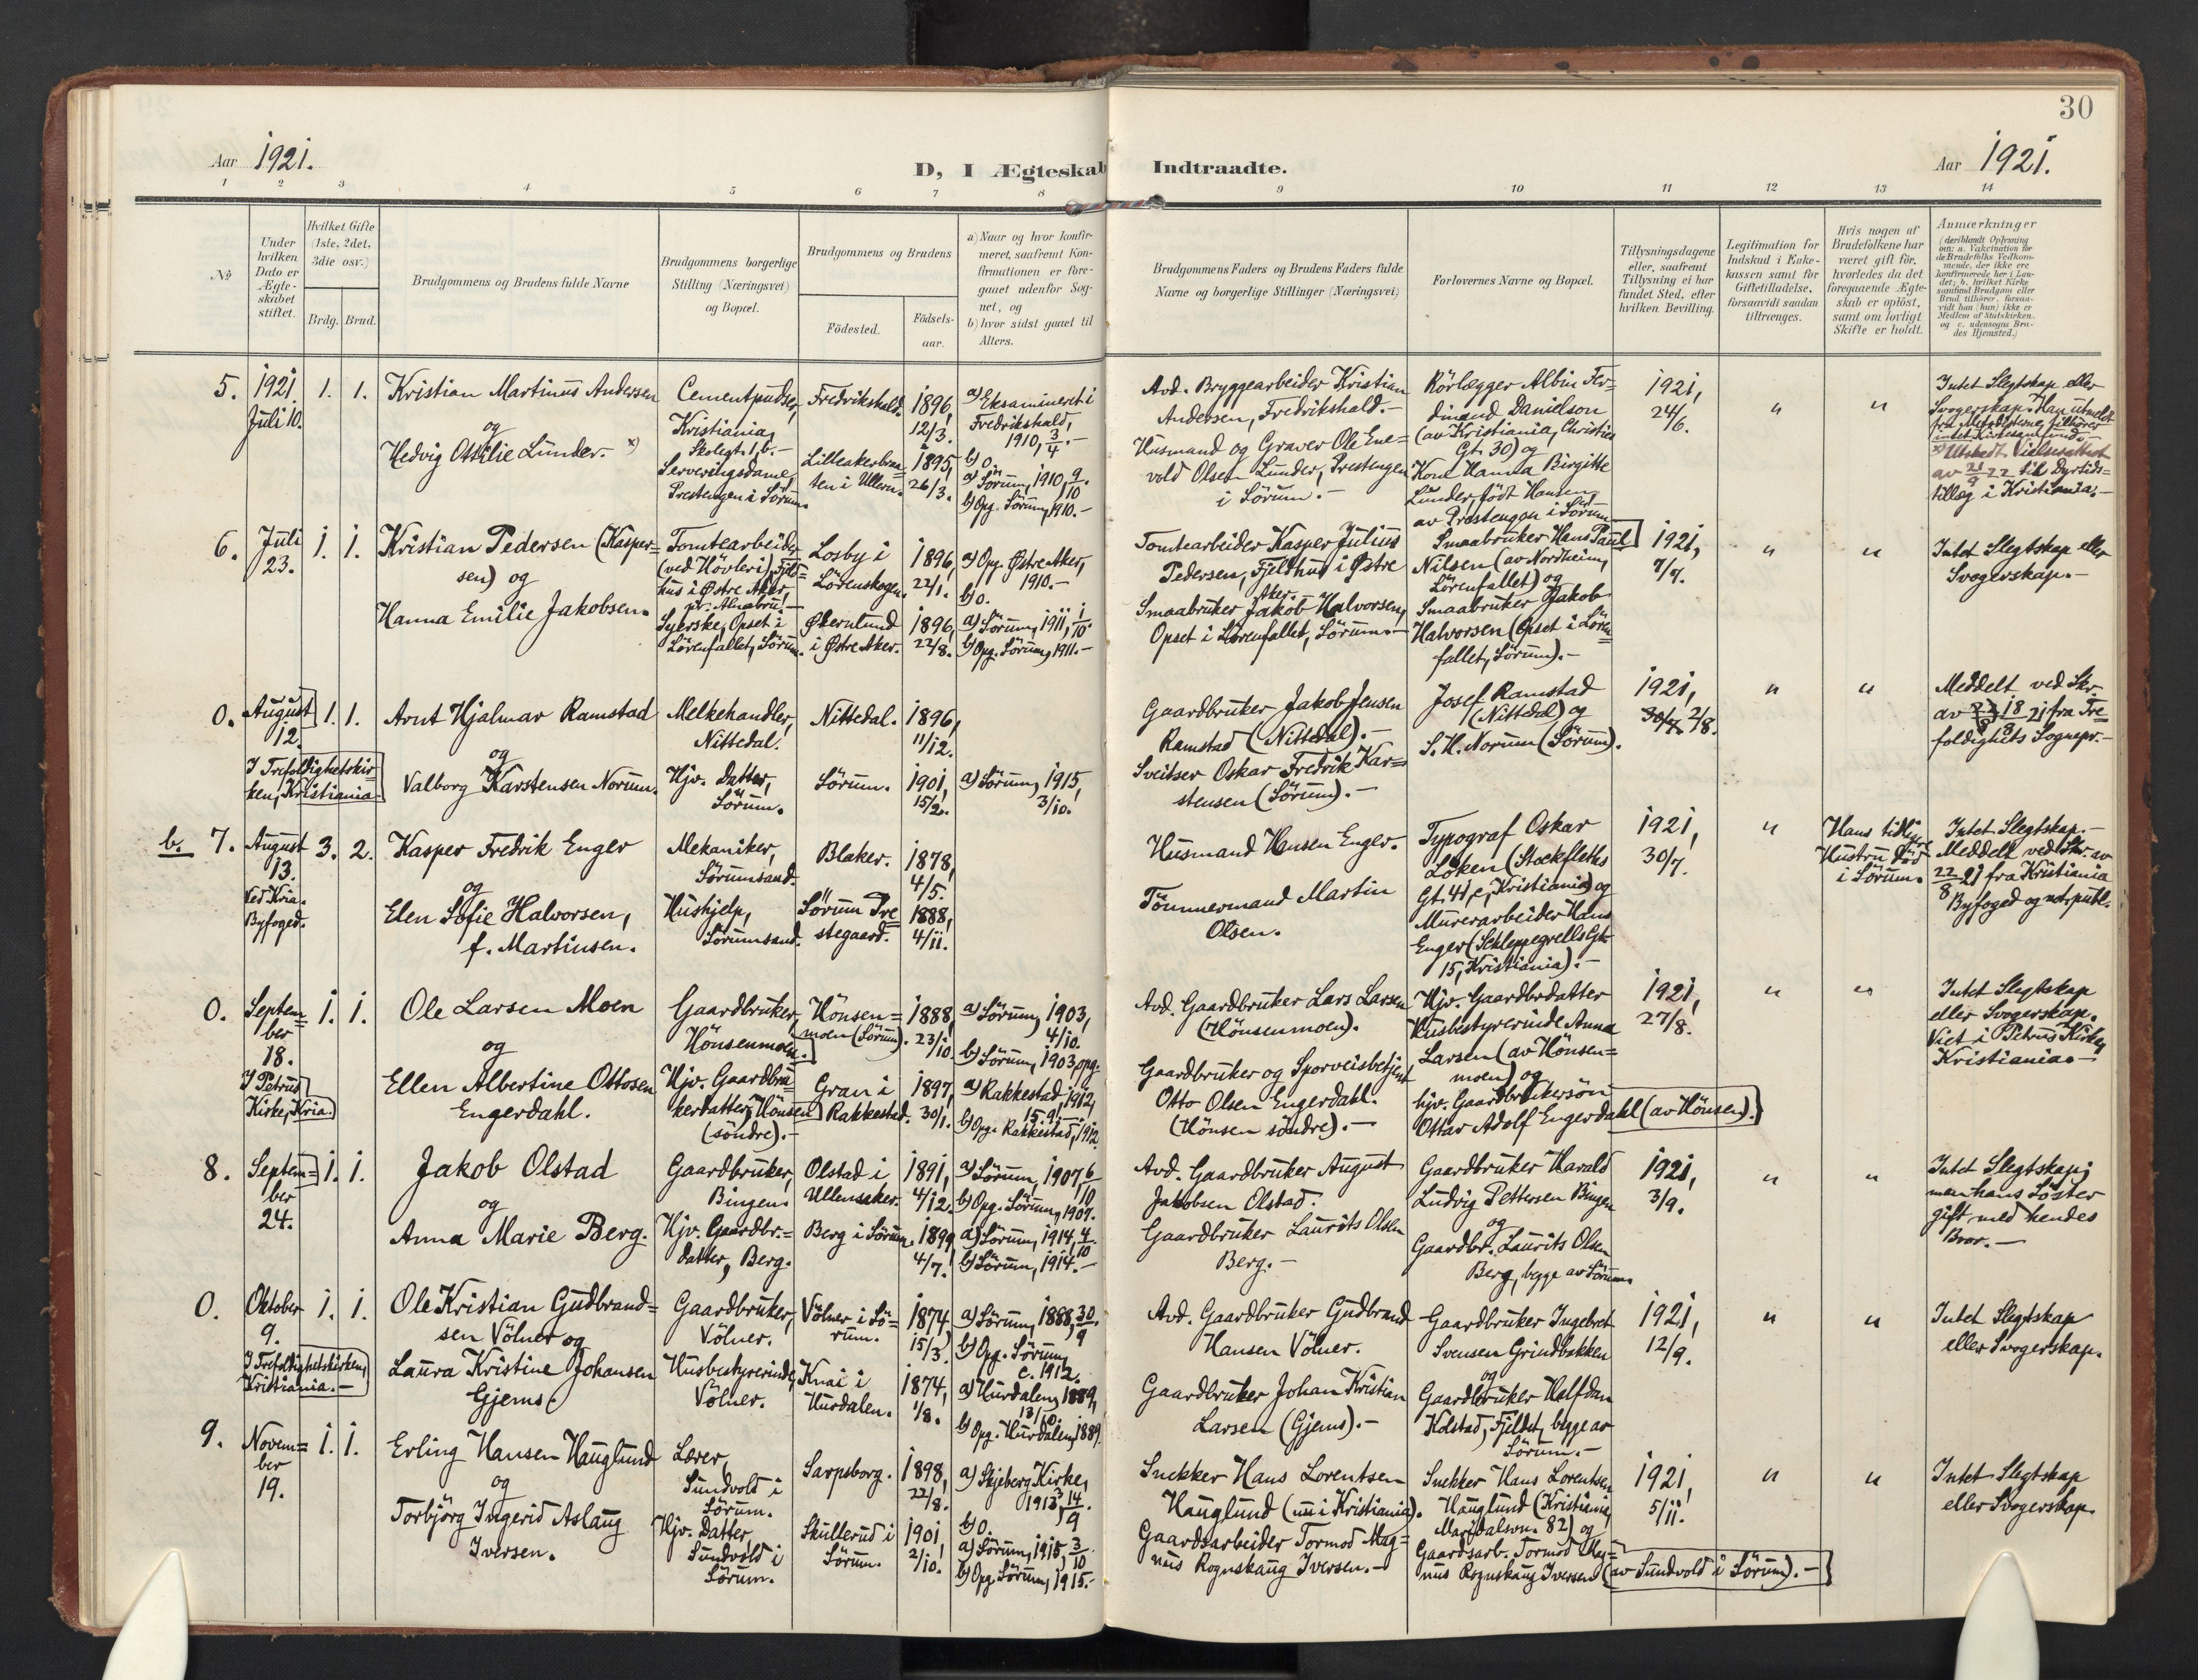 30
Aar 1921.
D, I Ægteskab Indtraadte.
Aar 1921.
1 2 3 4 5 6 7 8 9 10 11 12 13 14
No
Under hvilken Dato er Ægteskabet stiftet.
Hvilket Gifte (1ste, 2det, 3die osv.)
Brdg. Brud.
Brudgommens og Brudens fulde Navne
Brudgommens borgerlige Stilling (Næringsvei) og Bopæl.
Brudgommens og Brudens
Födested.
Födselsaar.
a) Naar og hvor konfirmeret, saafremt Konfirmationen er foregaaet udenfor Sognet, og
b) hvor sidst gaaet til Alters.
Brudgommens Faders og Brudens Faders fulde Navne og borgerlige Stillinger (Næringsvei)
Forlovernes Navne og Bopæl.
Tillysningsdagene eller, saafremt Tillysning ei har fundet Sted, efter hvilken Bevilling.
Legitimation for Indskud i Enkekassen samt for Giftetilladelse, forsaavidt saadan tiltrænges.
Hvis nogen af Brudefolkene har været gift før, hvorledes da det foregaaende Ægteskab er oplöst, samt om lovligt Skifte er holdt.
Anmærkninger
(deriblandt Oplysning om: a. Vakcination for de Brudefolks Vedkommende, der ikke ere konfirmerede her i Landet; b. hvilket Kirkesamfund Brudgom eller Brud tilhörer, forsaavidt han (hun) ikke er Medlem af Statskirken, og c. udensogns Brudes Hjemsted.)
5.
1921
Juli 10.
1. 1.
Kristian Martinus Andersen
og
Hedvig Ottilie Lunder. x)
Cementpudser,
Kristiania,
Skolegt. 1, b. —
Serveringsdame,
Prestengen i Sörum.
Fredrikshald.
Lilleakerbraaten i Ullern.
1896,
12/3.
1895,
26/3.
a) Eksamineret i
Fredrikshald,
1910, 3/4. —
b) 0.
a) Sörum, 1910, 9/10.
b) Opg. Sörum, 1910. —
Avd. Bryggearbeider Kristian
Andersen, Fredrikshald. —
Husmand og Graver Ole Enevold Olsen Lunder, Prestengen
i Sörum. —
Rörlægger Albin Ferdinand Danielson
(av Kristiania, Christies
Gt. 30) og
Kone Hanna Birgitte
Lunder, födt Hansen,
av Prestengen i Sörum.
1921,
24/6.
" "
Intet Slegtskap eller
Svogerskap. Han utmeldt
fra Metodisterne, tilhörer
intet Kirkesamfund. —
x) Utstedt Vielsesattest
av 21/9 22 til Dyrtidstillæg i Kristiania. —
6.
Juli
23.
1. 1.
Kristian Pedersen (Kaspersen) og
Hanna Emilie Jakobsen.
Tomtearbeider
(ved Hövleri), Fjeldhus i Østre Aker,
pr. Alnabru. —
Syerske, Opset i
Lörenfallet, Sörum.
Losby i
Lörenskogen.
Økernlund
i Østre Aker.
1896,
22/1.
1896,
22/8.
a) Opg. Østre Aker,
1910. —
b) 0.
a) Sörum, 1911, 1/10.
b) Opg. Sörum, 1911. —
Tomtearbeider Kasper Julius
Pedersen, Fjeldhus i Østre
Aker. —
Smaabruker Jakob Halvorsen,
Opset i Lörenfallet, Sörum. —
Smaabruker Hans Paul
Nilsen (av Nordheim,
Lörenfallet) og
Smaabruker Jakob
Halvorsen (Opset i Lörenfallet, Sörum). —
1921,
7/7.
" "
Intet Slegtskap eller
Svogerskap. —
0.
August
12.
I Trefoldighetskirken, Kristiania.
1. 1.
Arnt Hjalmar Ramstad
og
Valborg Karstensen Norum.
Melkehandler,
Nittedal.
Hjv. Datter,
Sörum.
Nittedal.
Sörum.
1896,
11/12.
1901,
15/2.
a) Sörum, 1915,
3/10.
Gaardbruker Jakob Jensen
Ramstad (Nittedal). —
Sveitser Oskar Fredrik Karstensen (Sörum). —
Josef Ramstad
(Nittedal) og
S. H. Norum (Sörum).
1921,
30/7 2/8.
" "
Meddelt ved Skr.
av 18/8 21 fra Trefoldighets Sognepr. —
b. 7.
August
13.
Ved Kria.
Byfoged.
3. 2.
Kasper Fredrik Enger
og
Elen Sofie Halvorsen,
f. Martinsen.
Mekaniker,
Sörumsand.
Hushjelp,
Sörumsand.
Blaker.
Sörum Prestegaard.
1878,
4/5.
1888,
4/11.
Husmand Hansen Enger.
Tömmermand Martin
Olsen.
Typograf Oskar
Löken (Stockfleths
Gt. 41, c, Kristiania) og
Murerarbeider Hans
Enger (Schleppegrells Gt.
15, Kristiania). —
1921,
30/7.
"
Hans tidligere
Hustru död
i Sörum.
Intet Slegtskap. —
Meddelt ved Skr. av
22/8 21 fra Kristiania
Byfoged og not. publ.
0.
September
18.
I Petrus
Kirke, Kria.
1. 1.
Ole Larsen Moen
og
Ellen Albertine Ottosen
Engerdahl.
Gaardbruker,
Hönsenmoen.
Hjv. Gaardbrukerdatter, Hönsen
(söndre). —
Hönsenmoen (Sörum).
Gran i
Rakkestad.
1888,
23/10.
1897,
30/1.
a) Sörum, 1903,
4/10.
b) Sörum, 1903 opg.
a) Rakkestad, 1912,
15/9.
b) Opg. Rakkestad, 1912.
Avd. Gaardbruker Lars Larsen
(Hönsenmoen).
Gaardbruker og Sporveisbetjent
Otto Olsen Engerdahl.
(Hönsen söndre). —
Hjv. Gaardbrdatter
Husbestyrerinde Anna
Larsen (av Hönsenmoen) og
hjv. Gaardbrukersön
Ottar Adolf Engerdahl (av Hönsen).
1921,
27/8.
" "
Intet Slegtskap
eller Svogerskap.
Viet i Petrus Kirke,
Kristiania. —
8.
September
24.
1. 1.
Jakob Olstad
og
Anna Marie Berg.
Gaardbruker,
Bingen.
Hjv. Gaardbr.datter, Berg.
Olstad i
Ullensaker.
Berg i Sörum.
1891,
4/12.
1899,
4/7.
a) Sörum, 1907, 6/10
b) Opg. Sörum, 1907.
a) Sörum, 1914, 4/10
b) Sörum, 1914. —
Avd. Gaardbruker August
Jakobsen Olstad.
Gaardbruker Laurits Olsen
Berg. —
Gaardbruker Harald
Ludvig Pettersen Bingen
og
Gaardbr. Laurits Olsen
Berg, begge av Sörum.
1921,
3/9.
" "
Intet Slegtskap;
men hans Söster
gift med hendes
Bror. —
0.
Oktober
9.
I Trefoldighetskirken,
Kristiania. —
1. 1.
Ole Kristian Gudbrandsen Völner og
Laura Kristine Johansen
Gjems.
Gaardbruker,
Völner.
Husbestyrerinde,
Völner.
Völner i Sörum.
Knai i
Hurdalen.
1874,
15/3.
1874,
1/8.
a) Sörum, 1888, 30/9.
b) Opg. Sörum,
c. 1912.
a) Hurdalen, 1889,
13/10.
b) Opg. Hurdalen, 1889.
Avd. Gaardbruker Gudbrand
Hansen Völner.
Gaardbruker Johan Kristian
Larsen (Gjems). —
Gaardbruker Ingebret
Svensen Grindbakken
og
Gaardbruker Halfdan
Kolstad, Fjeldet, begge av
Sörum. —
1921,
12/9.
" "
Intet Slegtskap
eller Svogerskap.
9.
November
19.
1. 1.
Erling Hansen Hauglund
og
Torbjörg Ingerid Aslaug
Iversen.
Lærer,
Sundvold i
Sörum.
Hjv. Datter,
Sundvold i
Sörum.
Sarpsborg.
Skullerud i
Sörum.
1898,
22/8.
1901,
2/10.
a) Skjeberg Kirke,
1913 14/9.
b) 0.
a) Sörum, 1915, 3/10.
b) Opg. Sörum, 1915. —
Snekker Hans Lorentsen
Hauglund (nu i Kristiania).
Gaardsarbeider Tormod Magnus Rognskaug Iversen. —
Snekker Hans Lorentsen
Hauglund (Kristiania,
Maridalsvn. 82) og
Gaardsarb. Tormod Magnus Rognskaug Iversen (av Sundvold i Sörum). —
1921,
5/11.
" "
Intet Slegtskap
eller Svogerskap.